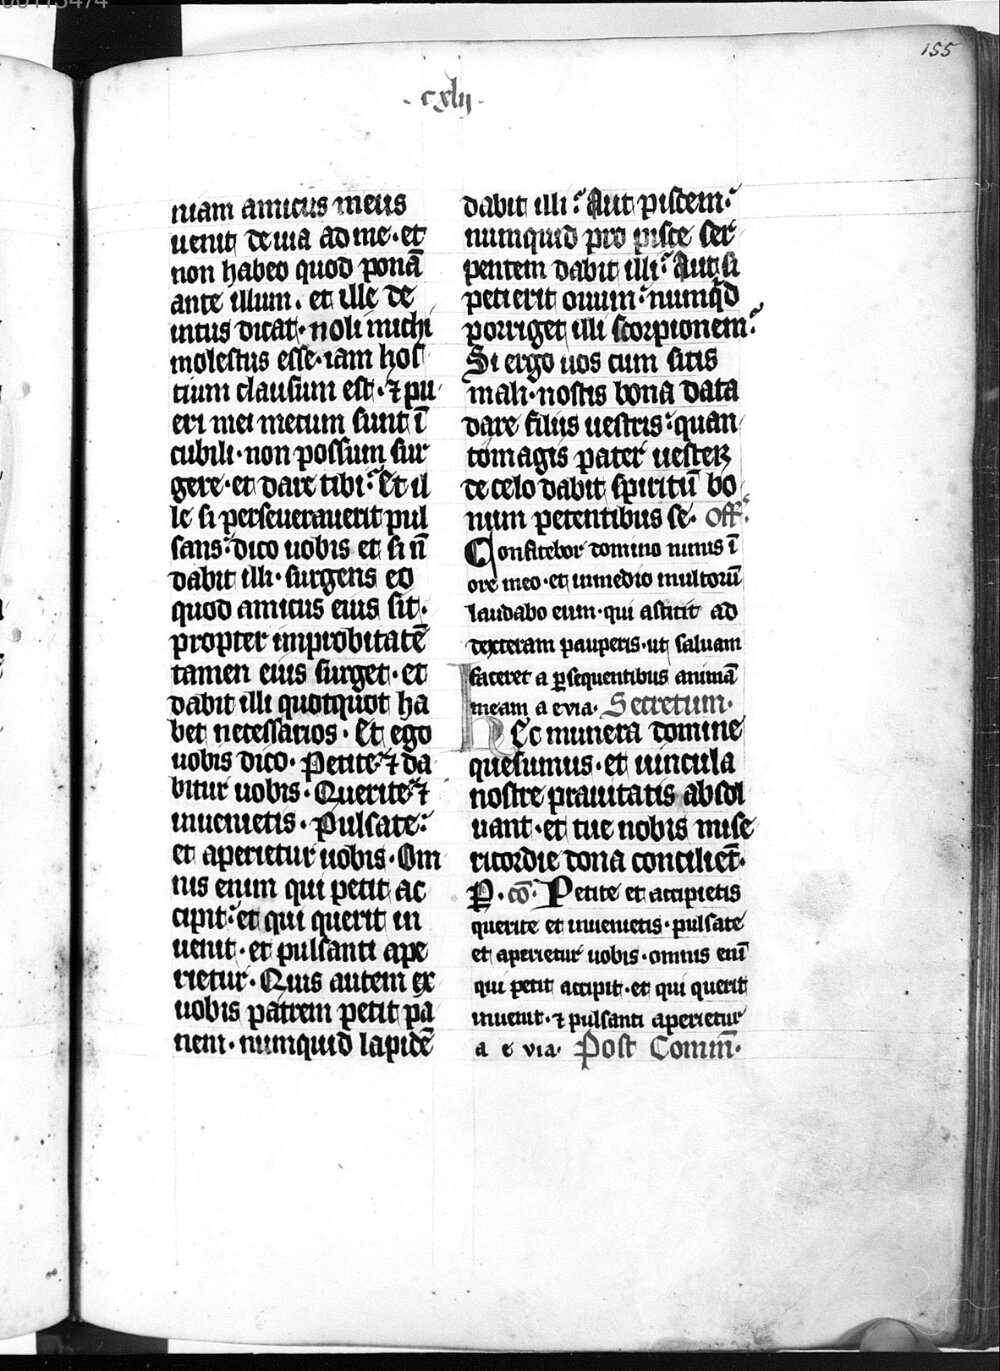 155
·cxlij·
niam amicus meus
uenit de uia ad me· et
non habeo quod ponā
ante illum· et ille de
intus dicat· noli michi
molestus esse· iam hos
tium clausum est· ⁊ pu
eri mei mecum sunt ī
cubili· non possum sur
gere· et dare tibi? Et il
le si perseuerauerit pul
sans: dico uobis et si ñ
dabit illi· surgens eo
quod amicus eius sit·
propter improbitatē
tamen eius surget· et
dabit illi quotquot ha
bet necessarios· Et ego
uobis dico· Petite: ⁊ da
bitur uobis· Querite: ⁊
inuenietis· Pulsate:
et aperietur uobis· Om
nis enim qui petit ac
cipit: et qui querit in
uenit· et pulsanti ape
rietur· Quis autem ex
uobis patrem petit pa
nem· numquid lapidē
dabit illi? Aut piscem:
numquid pro pisce ser
pentem dabit illi? Aut si
petierit ouum: numq̄d
porriget illi scorpionem?
Si ergo uos cum sitis
mali· nostis bona data
dare filiis uestris: quan
tomagis pater uester
de celo dabit spiritū bo
num petentibus se· Off
Confitebor domino nimis ī
ore meo· et in medio multorū
laudabo eum· qui astitit ad
dexteram pauperis· ut saluam
faceret a ꝑsequentibus animā
meam a evia· Secretum·
hEc munera domine
quesumus· et uincula
nostre prauitatis absol
uant· et tue nobis mise
ricordie dona concilient·
P· cō· Petite et accipietis
querite et inuenietis· pulsate
et aperietur uobis· omnis enī
qui petit accipit· et qui querit
inuenit· ⁊ pulsanti aperietur
a e via· Post Comm̄·